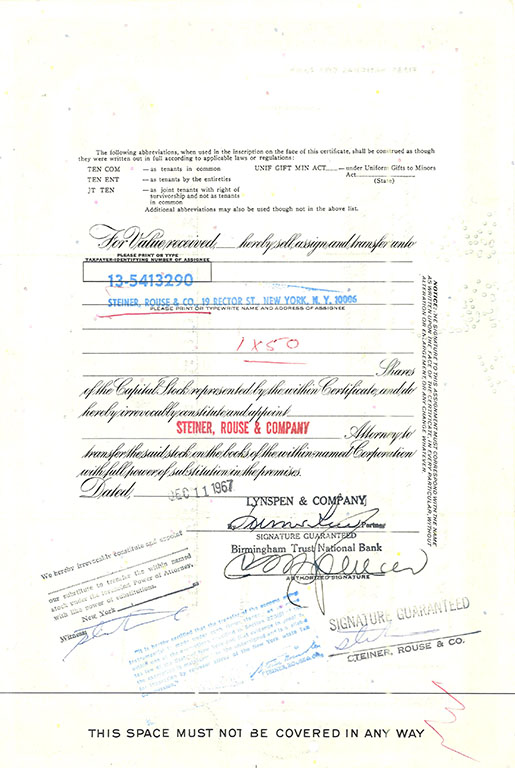 The following abbreviations, when used in the inscription on the face of this certificate, shall be construed as though
they were written out in full according to applicable laws or regulations:
TEN COM — as tenants in common UNIF GIFT MIN ACT — under Uniform Gifts to Minors
Act
(State)
TEN ENT — as tenants by the entireties
JT TEN — as joint tenants with right of
survivorship and not as tenants
in common
Additional abbreviations may also be used though not in the above list.
For Value received, hereby sell, assign and transfer unto
PLEASE PRINT OR TYPE
TAXPAYER-IDENTIFYING NUMBER OF ASSIGNEE
13-5413290
STEINER, ROUSE & CO., 19 RECTOR ST., NEW YORK, N. Y. 10006
PLEASE PRINT OR TYPEWRITE NAME AND ADDRESS OF ASSIGNEE
1x50
Shares
of the Capital Stock represented by the within Certificate, and do
hereby irrevocably constitute and appoint
STEINER, ROUSE & COMPANY
Attorney to
transfer the said stock on the books of the within-named Corporation
with full power of substitution in the premises.
Dated, DEC 11 1967
NOTICE: THE SIGNATURE TO THIS ASSIGNMENT MUST CORRESPOND WITH THE NAME
AS WRITTEN UPON THE FACE OF THE CERTIFICATE, IN EVERY PARTICULAR, WITHOUT
ALTERATION OR ENLARGEMENT, OR ANY CHANGE WHATEVER
LYNSPEN & COMPANY
By Partner
SIGNATURE GUARANTEED
Birmingham Trust National Bank
AUTHORIZED SIGNATURE
We hereby irrevocably constitute and appoint
our substitute to transfer the within named
stock under the foregoing Power of Attorney,
with like power of substitution.
New York
Witness
SIGNATURE GUARANTEED
STEINER, ROUSE & CO.
STEINER, ROUSE & CO.
THIS SPACE MUST NOT BE COVERED IN ANY WAY